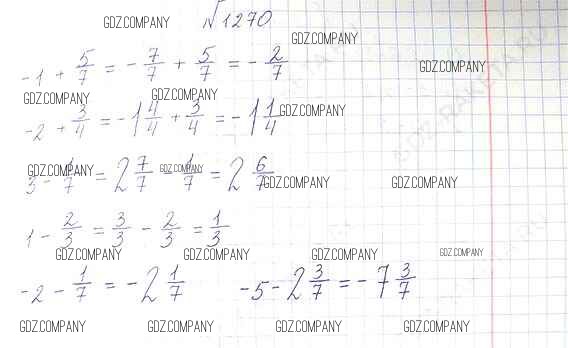 GDZ.COMPANY №1270 GDZ.COMPANY
-1 + 5/7 = -7/7 + 5/7 = -2/7 GDZ.COMPANY
GDZ.COMPANY GDZ.COMPANY
-2 + 3/4 = -1 4/4 + 3/4 = -1 1/4 GDZ.COMPANY
GDZ.COMPANY GDZ.COMPANY
3 - 1/7 = 2 7/7 - 1/7 = 2 6/7 GDZ.COMPANY GDZ.COMPANY
1 - 2/3 = 3/3 - 2/3 = 1/3
GDZ.COMPANY GDZ.COMPANY GDZ.COMPANY GDZ.COMPANY
-2 - 1/7 = -2 1/7 -5 - 2 3/7 = -7 3/7
GDZ.COMPANY GDZ.COMPANY GDZ.COMPANY GDZ.COMPANY